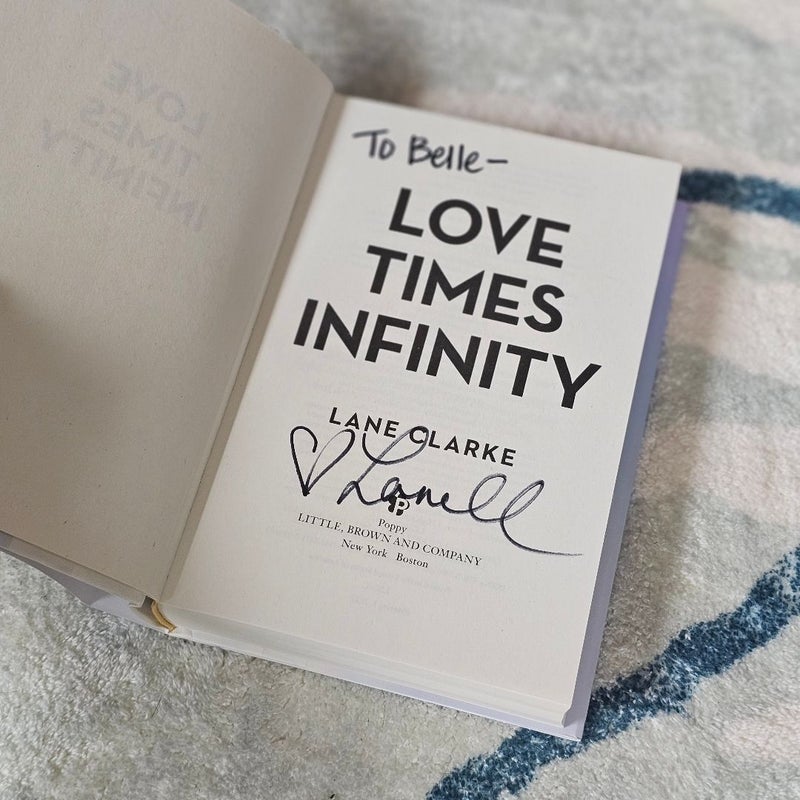 To Belle-
LOVE
TIMES
INFINITY
LANE CLARKE
♡ Lanell
Poppy
LITTLE, BROWN AND COMPANY
New York Boston